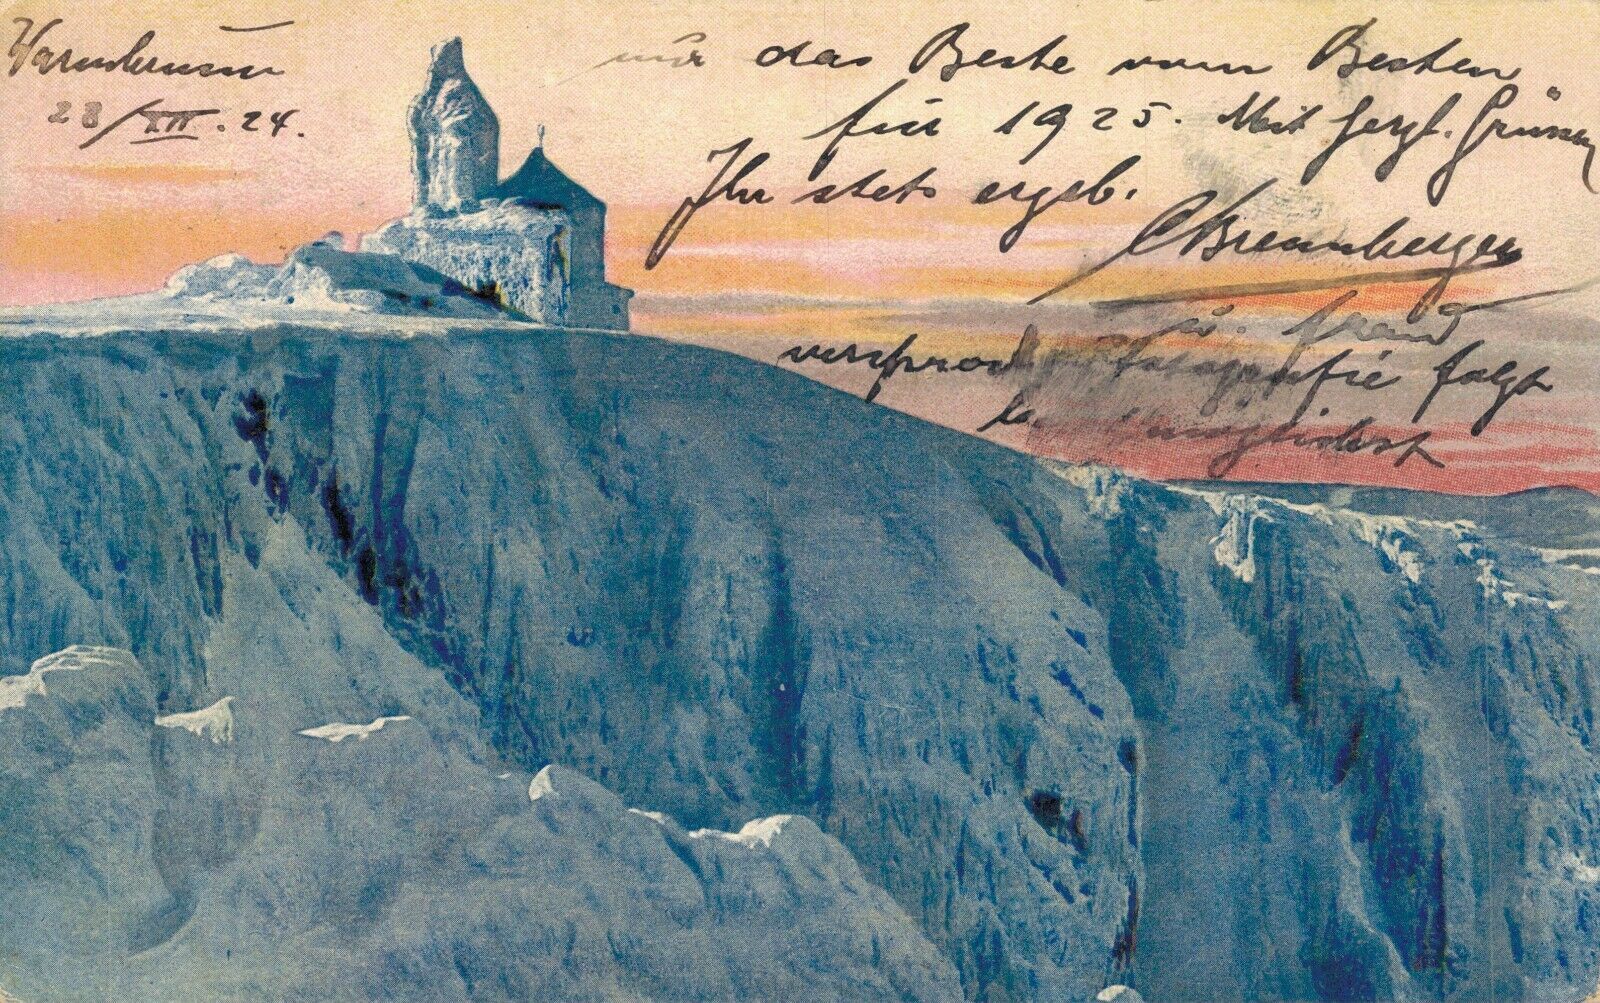 Warmbrunn
28/XII. 24.
nur das Beste vom Besten
für 1925. Mit herzl. Grüssen
Ihr stets ergeb.
CBrennberger
u. Frau
versproch Fotografie folgt